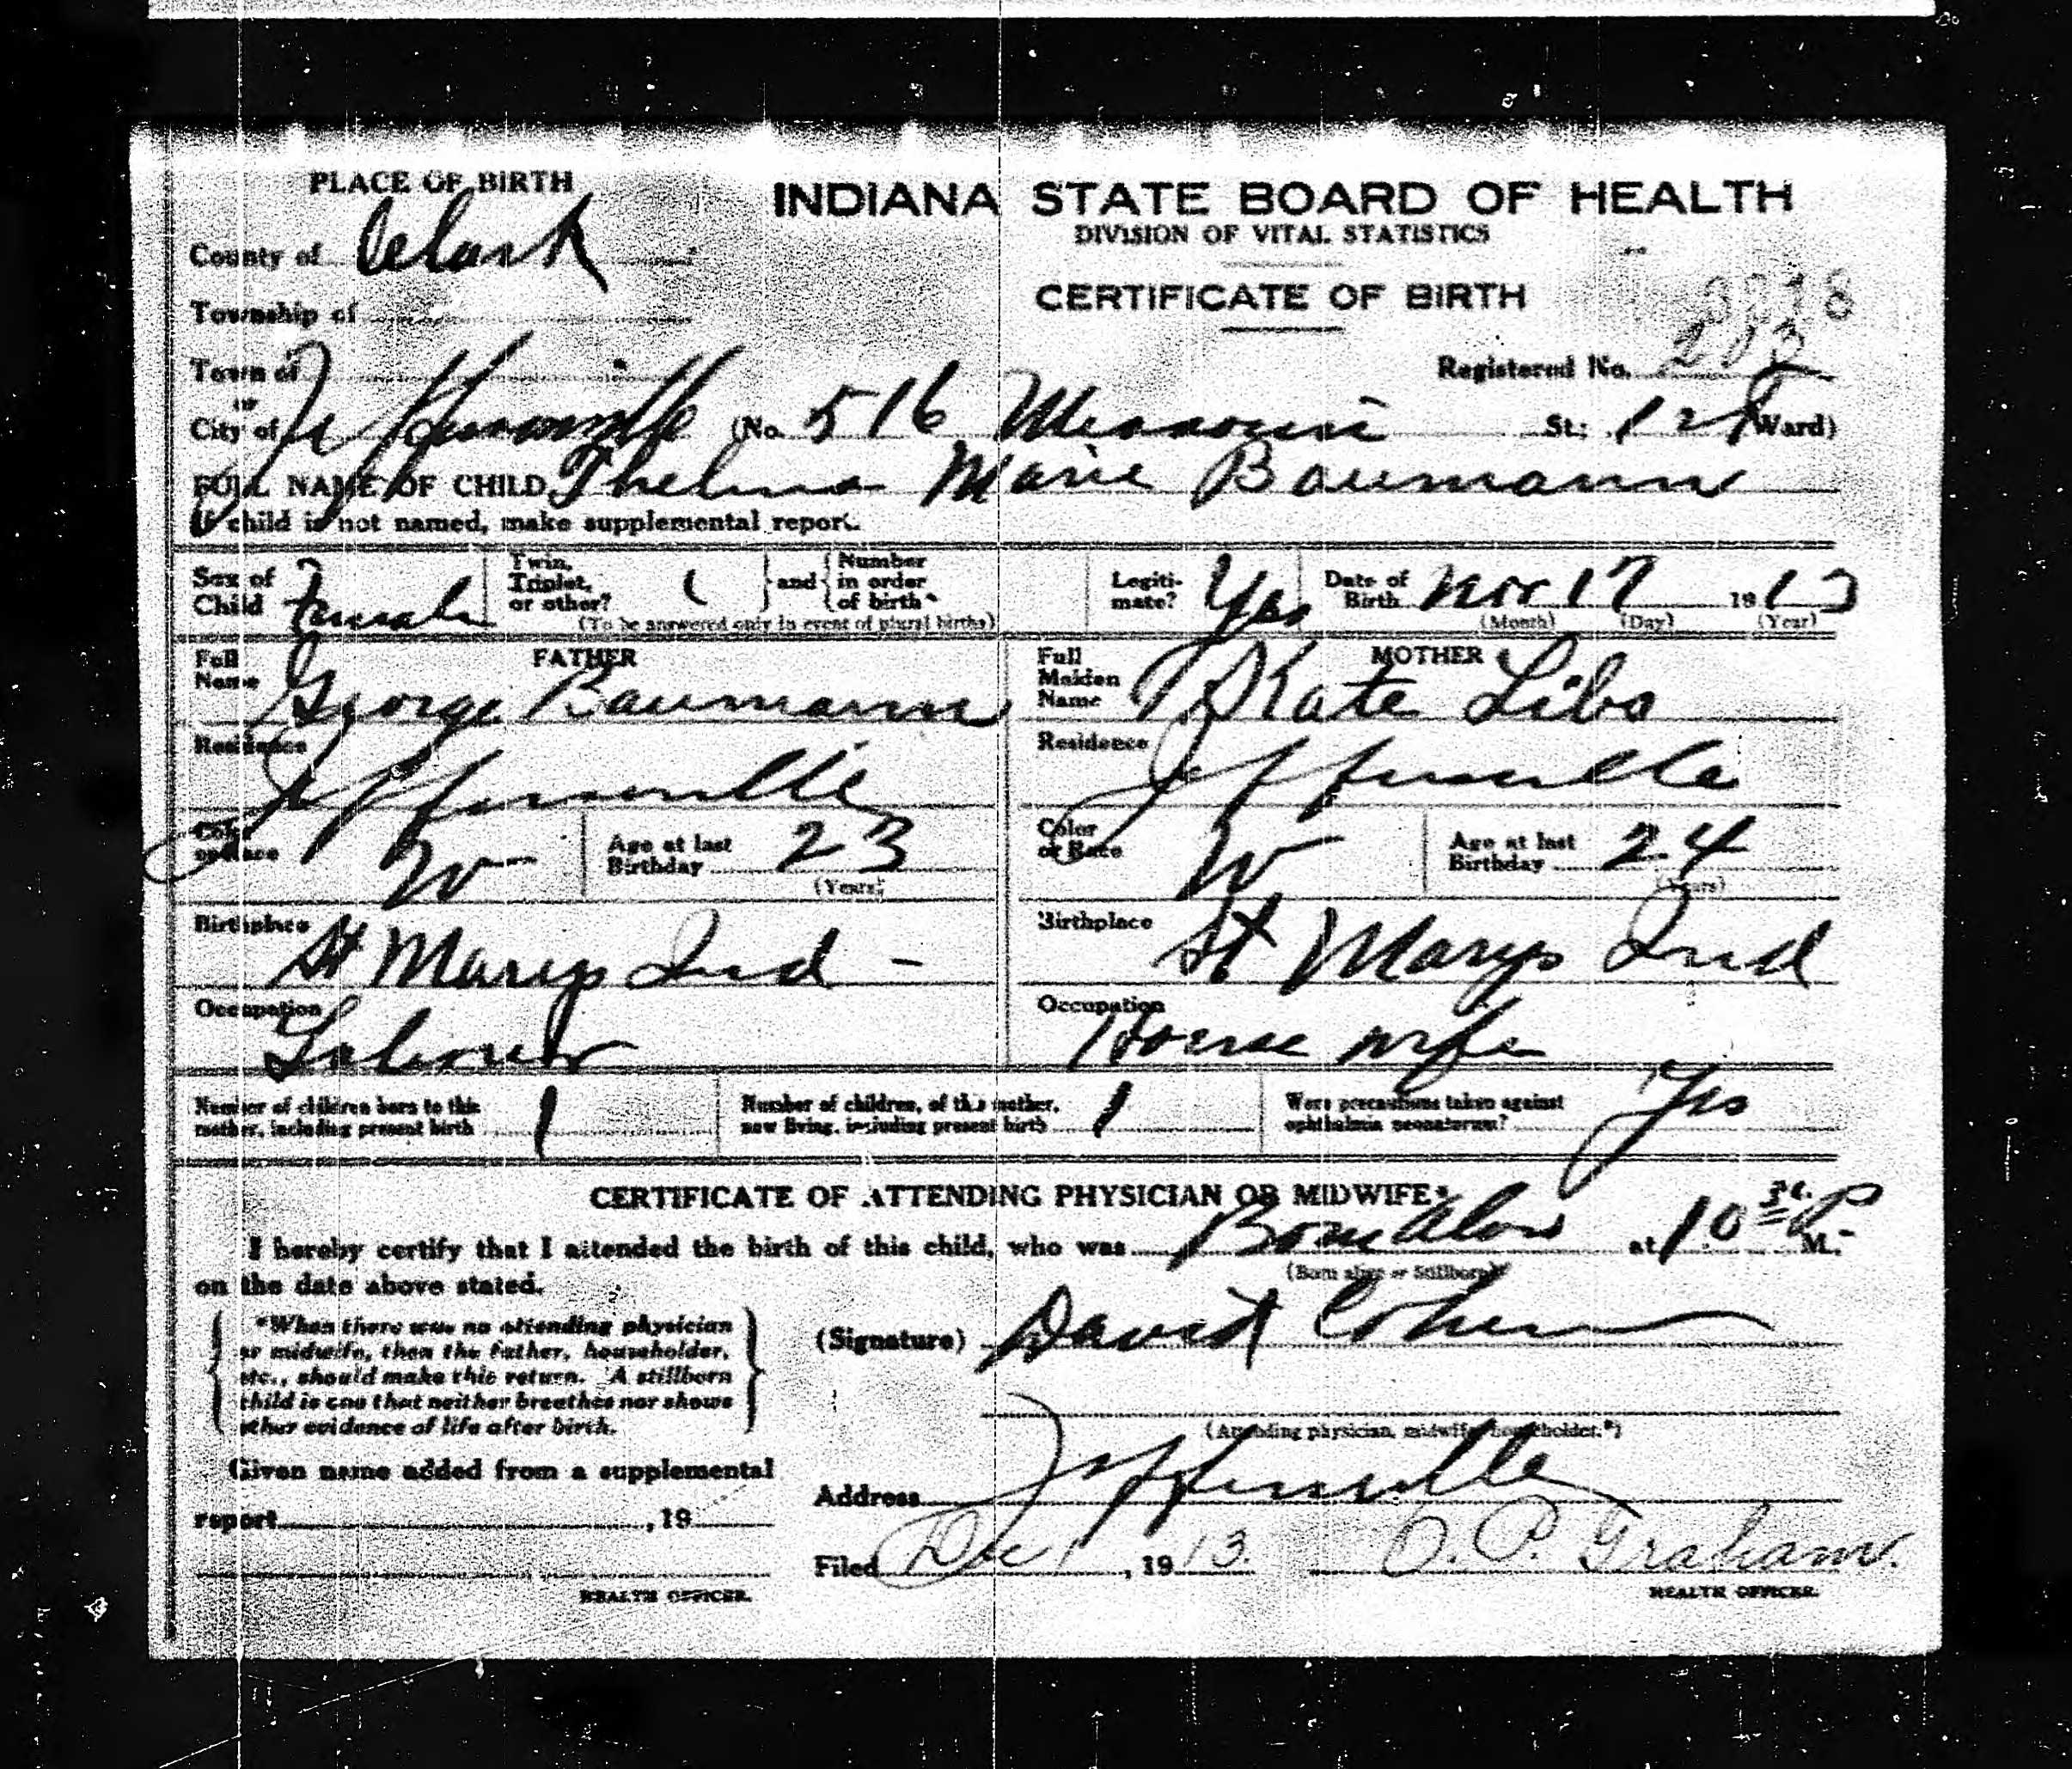 PLACE OF BIRTH
INDIANA STATE BOARD OF HEALTH
DIVISION OF VITAL STATISTICS
County of Clark
CERTIFICATE OF BIRTH
Township of
Town of
Registered No. 213
or
City of Jeffersonville (No. 516 Missouri St; 1st Ward)
FULL NAME OF CHILD Thelma Marie Baumann
If child is not named, make supplemental report.
Sex of Child Female
Twin, Triplet, or other? 1 and Number in order of birth
(To be answered only in event of plural births)
Legitimate? Yes
Date of Birth Nov 17 1913
(Month) (Day) (Year)
FATHER
Full Name George Baumann
MOTHER
Full Maiden Name Kate Libs
Residence Jeffersonville
Residence Jeffersonville
Color or Race W
Age at last Birthday 23
(Years)
Color or Race W
Age at last Birthday 24
(Years)
Birthplace St Marys Ind -
Birthplace St Marys Ind
Occupation Laborer
Occupation House wife
Number of children born to this mother, including present birth 1
Number of children, of this mother, now living, including present birth 1
Were precautions taken against ophthalmia neonatorum? Yes
CERTIFICATE OF ATTENDING PHYSICIAN OR MIDWIFE*
I hereby certify that I attended the birth of this child, who was Born alive at 10 30 P M.
(Born alive or Stillborn)
on the date above stated.
*When there was no attending physician
or midwife, then the father, householder,
etc., should make this return. A stillborn
child is one that neither breathes nor shows
other evidence of life after birth.
(Signature) David Cohen
(Attending physician, midwife, householder.*)
Given name added from a supplemental
report , 19
Address Jeffersonville
Filed Dec 1, 1913. O. P. Graham.
HEALTH OFFICER.
HEALTH OFFICER.